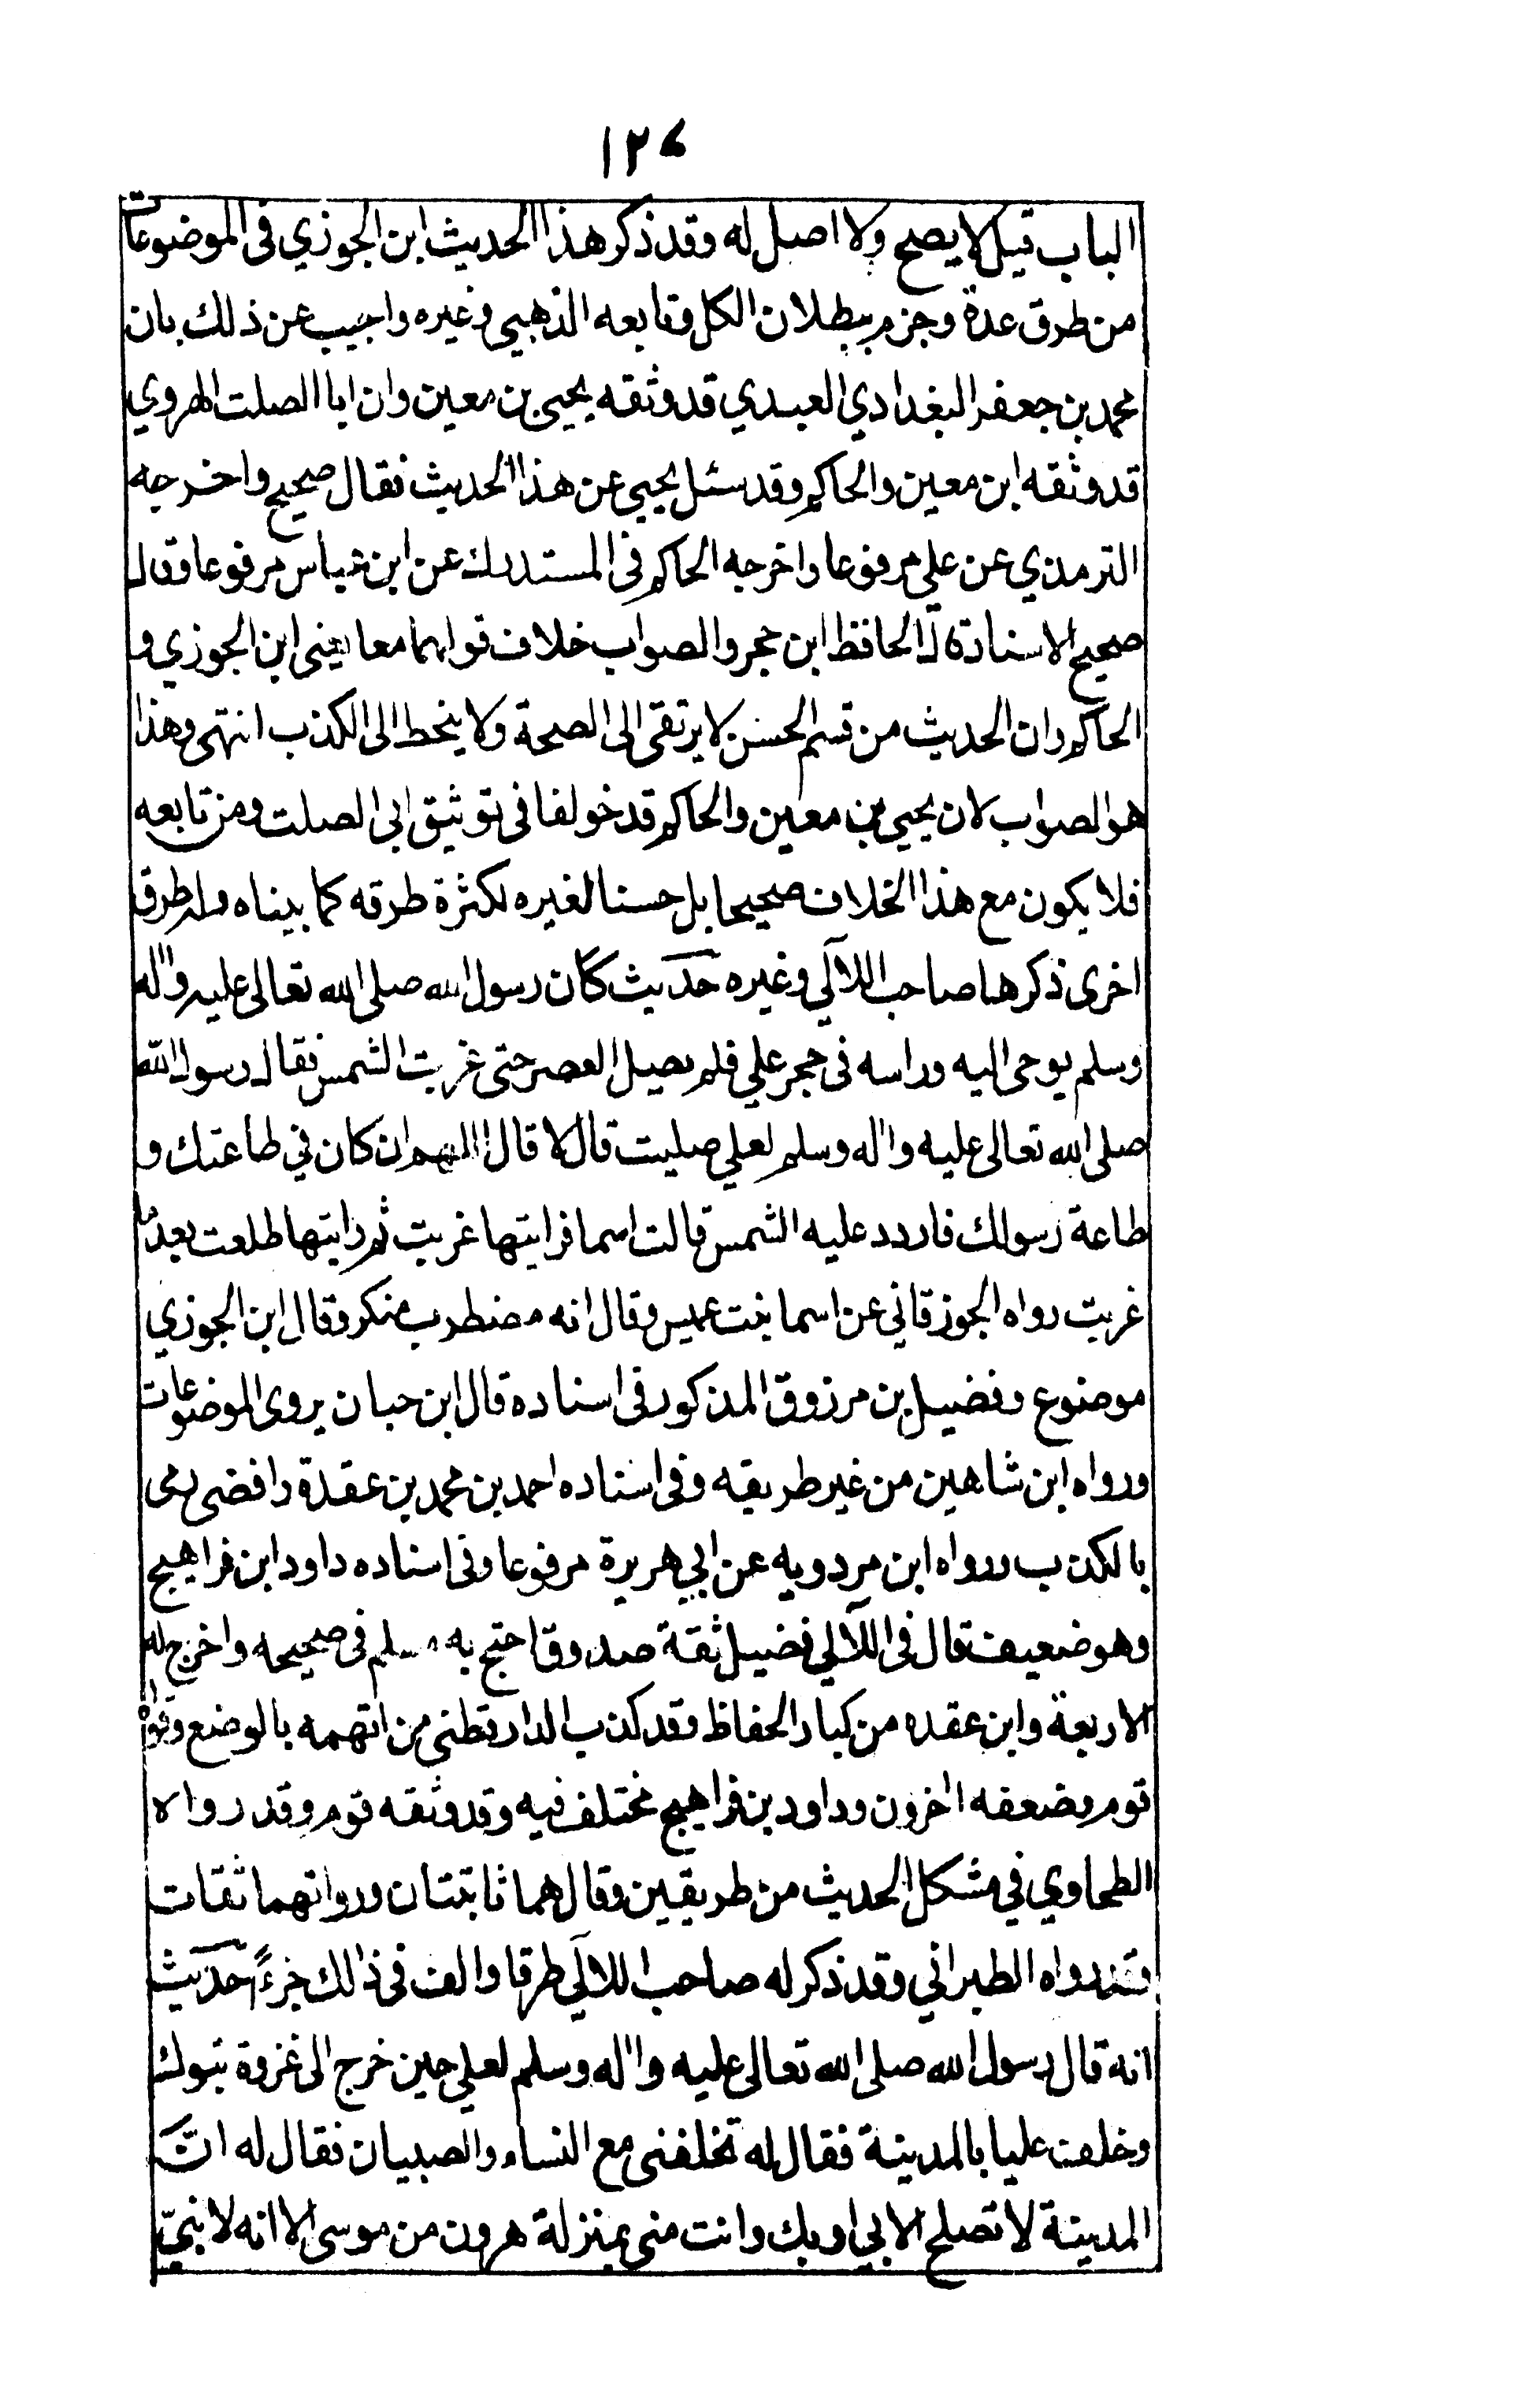 ١٢٧
الباب قيل لا يصح ولا اصل له وقد ذكر هذا الحديث ابن الجوزي فى الموضوعات
من طرق عدة وجزم ببطلان الكل وتابعه الذهبي وغيره واجيب عن ذلك بان
محمد بن جعفر البغدادي العبدي قد وثقه يحيى بن معين وان ابا الصلت الهروي
قد وثقه ابن معين والحاكم وقد سئل يحيى عن هذا الحديث فقال صحيح واخرجه
الترمذي عن علي مرفوعا واخرجه الحاكم فى المستدرك عن ابن عباس مرفوعا وقال
صحيح الاسناد قال الحافظ ابن حجر والصواب خلاف قولهما معا يعنى ابن الجوزي و
الحاكم وان الحديث من قسم الحسن لا يرتقى الى الصحة ولا ينحط الى الكذب انتهى وهذا
هو الصواب لان يحيى بن معين والحاكم قد خولفا فى توثيق ابى الصلت ومن تابعه
فلا يكون مع هذا الخلاف صحيحا بل حسنا لغيره لكثرة طرقه كما بيناه وله طرق
اخرى ذكرها صاحب اللآلي وغيره حديث كان رسول الله صلى الله تعالى عليه واله
وسلم يوحى اليه وراسه فى حجر علي فلم يصل العصر حتى غربت الشمس فقال رسول الله
صلى الله تعالى عليه واله وسلم لعلي صليت قال لا قال اللهم ان كان في طاعتك و
طاعة رسولك فاردد عليه الشمس قالت اسما فرايتها غربت ثم رايتها طلعت بعد ما
غربت رواه الجوزقاني عن اسما بنت عميس وقال انه مضطرب منكر وقال ابن الجوزي
موضوع وفضيل بن مرزوق المذكور فى اسناده قال ابن حبان يروى الموضوعات
ورواه ابن شاهين من غير طريقه وفى اسناده احمد بن محمد بن عقدة رافضى رمى
بالكذب ورواه ابن مردويه عن ابي هريرة مرفوعا وفى اسناده داود ابن فراهيج
وهو ضعيف قال فى اللآلي فضيل ثقة صدوق احتج به مسلم فى صحيحه واخرج له
الاربعة وابن عقده من كبار الحفاظ وقد كذب الدارقطنى من اتهمه بالوضع وقواه
قوم وضعفه اخرون وداود بن فراهيج مختلف فيه وقد وثقه قوم وقد رواه
الطحاوي في مشكل الحديث من طريقين وقال هما ثابتتان ورواتهما ثقات
وقد رواه الطبراني وقد ذكر له صاحب اللآلي طرقا والف فى ذلك جزءً حديث
انه قال رسول الله صلى الله تعالى عليه واله وسلم لعلي حين خرج الى غزوة تبوك
وخلف عليا بالمدينة فقال له تخلفنى مع النساء والصبيان فقال له انّ
المدينة لا تصلح الا بي او بك وانت منى بمنزلة هرون من موسى الا انه لا نبيّ